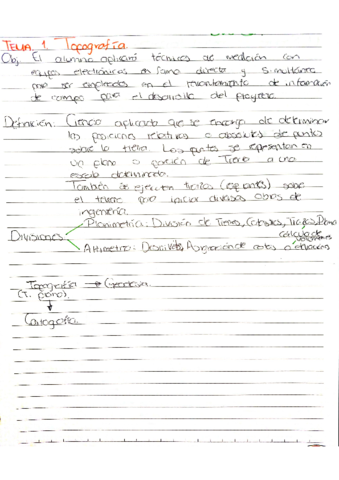 TEMA 1. Topografía
Obj. El alumno aplicará técnicas de medición con
equipos electrónicos en forma directa y simultánea
para ser empleados en el levantamiento de información
de campo para el desarrollo del proyecto
Definición: Ciencia aplicada que se encarga de determinar
las posiciones relativas o absolutas de puntos
sobre la tierra. Los puntos se representan en
un plano o porción de Tierra a una
escala determinada.
También se ejecutan trazos sobre
el terreno para iniciar diversas obras de
ingeniería.
Planimetría: División de Tierras, Catastros,
Cálculo de
Divisiones
Altimetría: Desniveles, Asignación de cotas o
Topografía → Geodesia
(T. plano)
↓
Cartografía